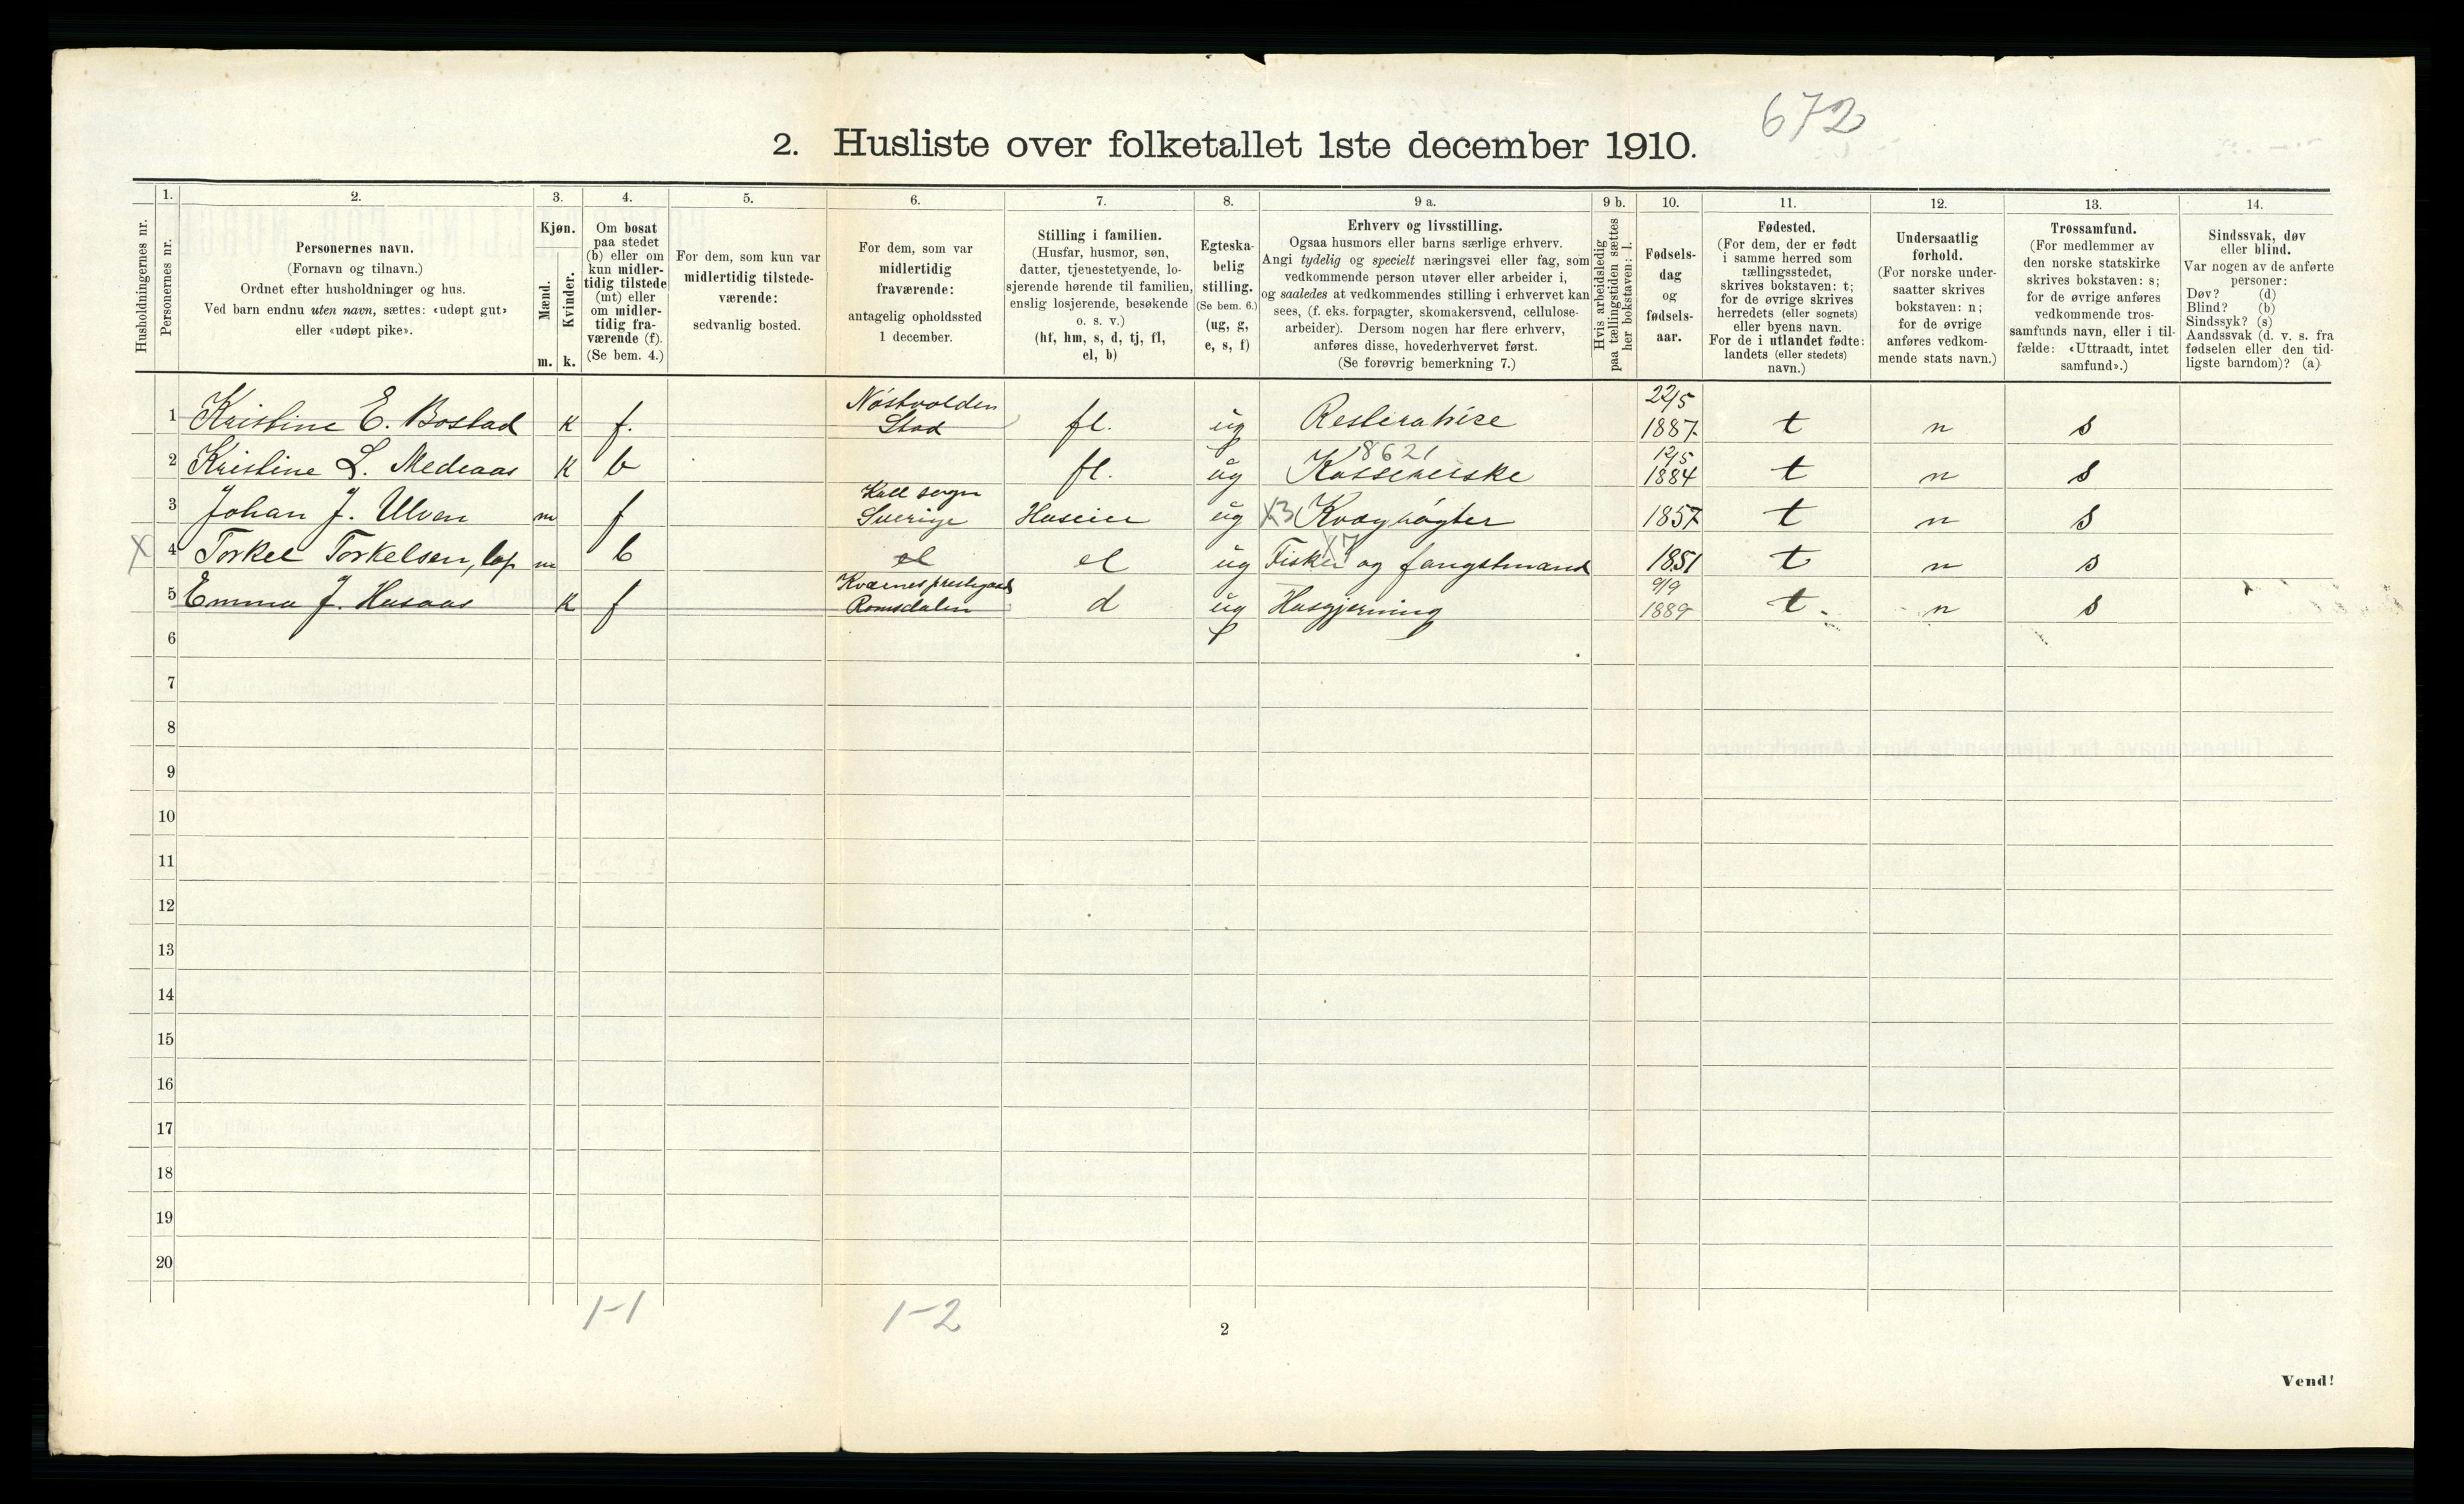 672
2. Husliste over folketallet 1ste december 1910.
Husholdningernes nr.
1.
Personernes nr.
2.
Personernes navn.
(Fornavn og tilnavn.)
Ordnet efter husholdninger og hus.
Ved barn endnu uten navn, sættes: «udøpt gut»
eller «udøpt pike».
3.
Kjøn.
Mænd.
m.
Kvinder.
k.
4.
Om bosat
paa stedet
(b) eller om
kun midler-
tidig tilstede
(mt) eller
om midler-
tidig fra-
værende (f).
(Se bem. 4.)
5.
For dem, som kun var
midlertidig tilstede-
værende:
sedvanlig bosted.
6.
For dem, som var
midlertidig
fraværende:
antagelig opholdssted
1 december.
7.
Stilling i familien.
(Husfar, husmor, søn,
datter, tjenestetyende, lo-
sjerende hørende til familien,
enslig losjerende, besøkende
o. s. v.)
(hf, hm, s, d, tj, fl,
el, b)
8.
Egteska-
belig
stilling.
(Se bem. 6.)
(ug, g,
e, s, f)
9 a.
Erhverv og livsstilling.
Ogsaa husmors eller barns særlige erhverv.
Angi tydelig og specielt næringsvei eller fag, som
vedkommende person utøver eller arbeider i,
og saaledes at vedkommendes stilling i erhvervet kan
sees, (f. eks. forpagter, skomakersvend, cellulose-
arbeider). Dersom nogen har flere erhverv,
anføres disse, hovederhvervet først.
(Se forøvrig bemerkning 7.)
9 b.
Hvis arbeidsledig
paa tællingstiden sættes
her bokstaven: l.
10.
Fødsels-
dag
og
fødsels-
aar.
11.
Fødested.
(For dem, der er født
i samme herred som
tællingsstedet,
skrives bokstaven: t;
for de øvrige skrives
herredets (eller sognets)
eller byens navn.
For de i utlandet fødte:
landets (eller stedets)
navn.)
12.
Undersaatlig
forhold.
(For norske under-
saatter skrives
bokstaven: n;
for de øvrige
anføres vedkom-
mende stats navn.)
13.
Trossamfund.
(For medlemmer av
den norske statskirke
skrives bokstaven: s;
for de øvrige anføres
vedkommende tros-
samfunds navn, eller i til-
fælde: «Uttraadt, intet
samfund».)
14.
Sindssvak, døv
eller blind.
Var nogen av de anførte
personer:
Døv? (d)
Blind? (b)
Sindssyk? (s)
Aandssvak (d. v. s. fra
fødselen eller den tid-
ligste barndom)? (a)
Nóstvolden 22/5
1 Kristine E. Bostad k f. Stod fl. ug 1887 t n s
8621 12/5
2 Kristine L. Medraas k b fl. ug Kassererske 1884 t n s
Kall sogn
3 Johan J. Ulven m f Sverige Huseier ug X3 Kvægrøgter 1857 t n s
X7
X 4 Torkel Torkelsen, lap m b el el ug Fisker og fangstmand 1851 t n s
Kværnes prestegaard 9/9
5 Emma J. Husaas k f Romsdalen d ug Husgjerning 1889 t. n s
6
7
8
9
10
11
12
13
14
15
16
17
18
19
20
1-1 1-2
2
Vend!